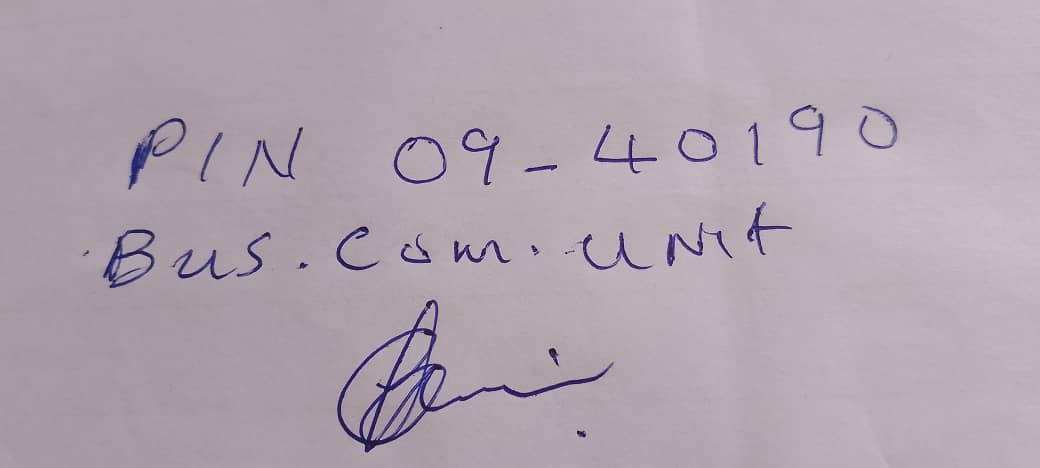 PIN 09-40190
Bus. Com. UNit